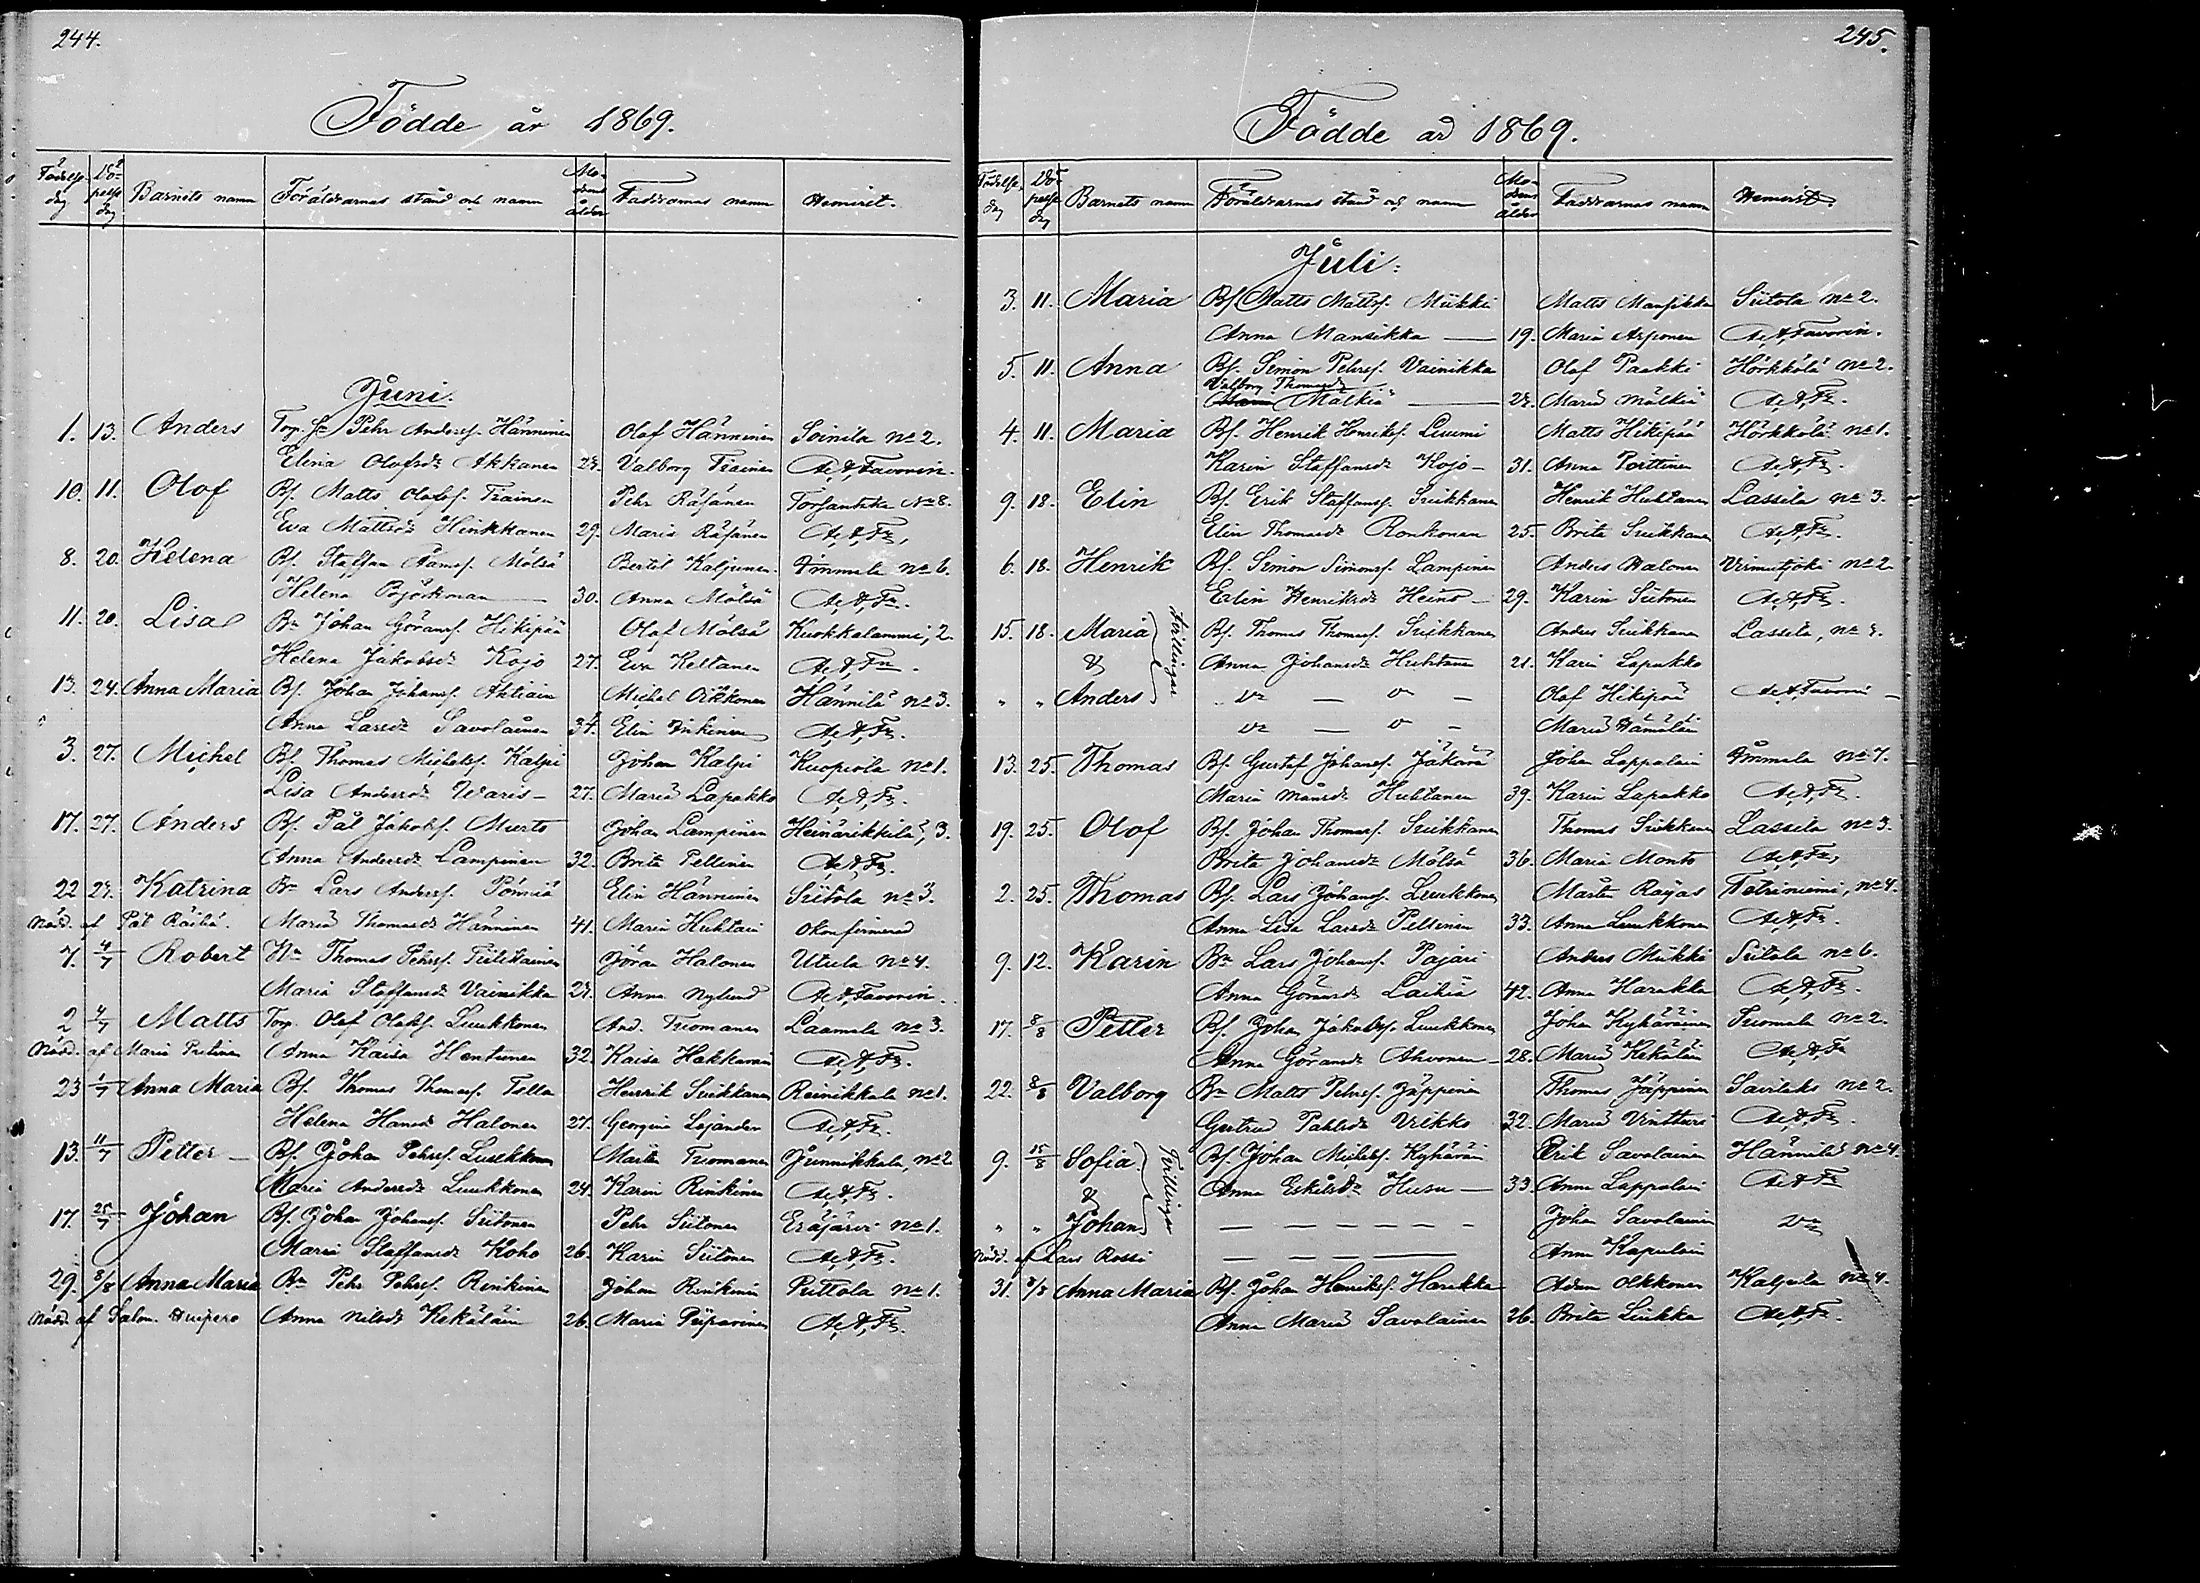 244.
Födde år 1869.
Födelse dag Döpelse dag Barnets namn Föräldrarnas stånd och namn Moderns ålder Faddrarnas namn Hemvist.
Juni.
1. 13. Anders Torp. Pehr Andersf. Hänninen Olof Hänninen Soinila No 2.
Elina Olofsdr Akkanen Valborg Tiainen A.A. Favorin.
10. 11. Olof Bf. Matts Olofsf. Tiainen Pehr Räsänen Torsantaka No 8.
Eva Mattsdr Hinkkanen 29. Maria Räsänen A.A.Fn.
8. 20. Helena Bf. Staffan Mölsä Bertil Kaljunen Immala No 6.
Helena Pöjökonan 30. Anna Mölsä A.A.Fn.
11. 20. Lisa Bn Johan Göransf. Hikipää Olof Mölsä Kuokkalammi, 2.
Helena Jakobsdr Kojo 27. Eva Keltanen A.A.Fn.
13. 24. Anna Maria Bf. Johan Johansf. Ahtiain Michel Oikkonen Hännilä No 3.
Anna Larsdr Savolainen 34. Elin Inkinen A.A.Fn.
3. 27. Michel Bf. Thomas Michelsf. Kalpi Johan Kalpi Kuopiola No 1.
Lisa Andersdr Waris 27. Maria Lapakko A.A.Fn.
17. 27. Anders Bf. Pål Jakobsf. Muerto Johan Lampinen Heinärikkilä, 3.
Anna Andersdr Lampinen 32. Brita Pellinen A.A.Fn.
22 Katrina Bn Lars Andersf. Pönniä Elin Hänninen Siitola No 3.
Nödd. af Pål Räihä. Maria Thomasdr Hänninen 41. Maria Huhtain okonfirmerad
7. 4/7 Robert Thomas Pehrsf. Tiilikainen Göran Halonen Utula No 4.
Maria Staffansdr Vainikka Anna Nylund A.A. Favorin.
2 4/7 Matts Torp. Olof Olofsf. Luukkonen And. Tuomanen Laamala No 3.
Nödd. af Maria Pulinen Anna Kaisa Hentunen 32. Kaisa Hakkarain A.A.Fn.
23 1/7 Anna Maria Bf. Thomas Thomasf. Tella Henrik Suikkanen Reinikkala No 1.
Helena Hansdr Halonen 27. Georgina Lejander A.A.Fn.
13. 11/7 Petter Bf. Johan Pehrsf. Luukkonen Mårten Tuomanen Junnikkala, No 2
Maria Andersdr Luukkonen 24. Karin Rinkinen A.A.Fn.
17. 25/7 Johan Bf. Johan Johansf. Siitonen Pehr Siitonen Eräjärvi No 1.
Maria Staffansdr Koho 26. Karin Siitonen A.A.Fn.
29. 8/8 Anna Maria Bn Pehr Pehrsf. Rinkinen Johan Rinkinen Puttola No 1.
Nödd. af Salom. Huipero Anna Nilsdr Kekäläin 26. Maria Piiparinen A.A.Fn.
245.
Födde år 1869.
Födelse dag Döpelse dag Barnets namn Föräldrarnas stånd och namn Moderns ålder Faddrarnas namn Hemvist.
Juli:
3. 11. Maria Bf. Matts Mattsf. Miikki Matts Mansikka Siitola No 2.
Anna Mansikka 19. Maria Asponen A.A. Favorin.
5. 11. Anna Bf. Simon Pehrsf. Vainikka Olof Paakki Hörkkölä No 2.
Valborg Thomasdr
Mälkiä Maria Mälkiä A.A.Fn.
4. 11. Maria Bf. Henrik Henriksf. Luumi Matts Hikipää Hörkkölä No 1.
Karin Staffansdr Kojo 31. Anna Poittinen A.A.Fn.
9. 18. Elin Bf. Erik Staffansf. Suikkanen Henrik Huhtanen Lassila No 3.
Elin Thomasdr Ronkonen 25. Brita Suikkanen A.A.Fn.
6. 18. Henrik Bf. Simon Simonsf. Lampinen Anders Halonen Virmutjoki No 2
Elin Henriksdr Heino 29. Karin Siitonen A.A.Fn.
15. 18. Maria Bf. Thomas Thomasf. Suikkanen Anders Suikkanen Lassila, No
Tvillingar
& Anna Johansdr Huhtanen 21. Karin Lapakko
" " Anders Olof Hikipää A.A. Favorin
Maria Hämäläi
13. 25. Thomas Bf. Gustaf Johansf. Jäkärä Johan Lappalain Immala No 7.
Maria Månsdr Huhtanen 39. Karin Lapakko A.A.Fn.
19. 25. Olof Bf. Johan Thomasf. Suikkanen Thomas Suikkanen Lassila No 3.
Brita Johansdr Mölsä 36. Maria Monto A.A.Fn.
2. 25. Thomas Bf. Lars Johansf. Luukkonen Mårten Rajas Tetriniemi, No 4.
Anna Lisa Larsdr Pellinen 33. Anna Luukkonen A.A.Fn.
9. 12. Karin Bn Lars Johansf. Pajari Anders Miikki Siitola No 6.
Anna Göransdr Laihia 42. Anna Harakka A.A.Fn.
17. 8/8 Petter Bf. Johan Jakobsf. Luukkonen Johan Kyhäräinen Tuomala No 2.
Anna Göransdr Ahvonen 28. Maria Kekäläin A.A.Fn
22. 8/8 Valborg Bn Matts Pehrsf. Jäppinen Thomas Jäppinen Savilaks No 2.
Gertrud Pahlsdr Ukkko 32. Maria Vintturi A.A.Fn.
9. 15/8 Sofia Bf. Johan Michelsf. Kyhäräin Erik Savolainen Hännilä No 4.
Tvillingar
& Anna Eskilsdr Husu 33. Anna Lappalain A.A.Fn
" " Johan Johan Savolainen
Nödd. af Lars Rossi Anna Kapulain
31. Anna Maria Bf. Johan Henriksf. Harakka Adam Olkkonen Kaljula No 4.
Anna Maria Savolainen 26. Brita Liukka A.A.Fn.